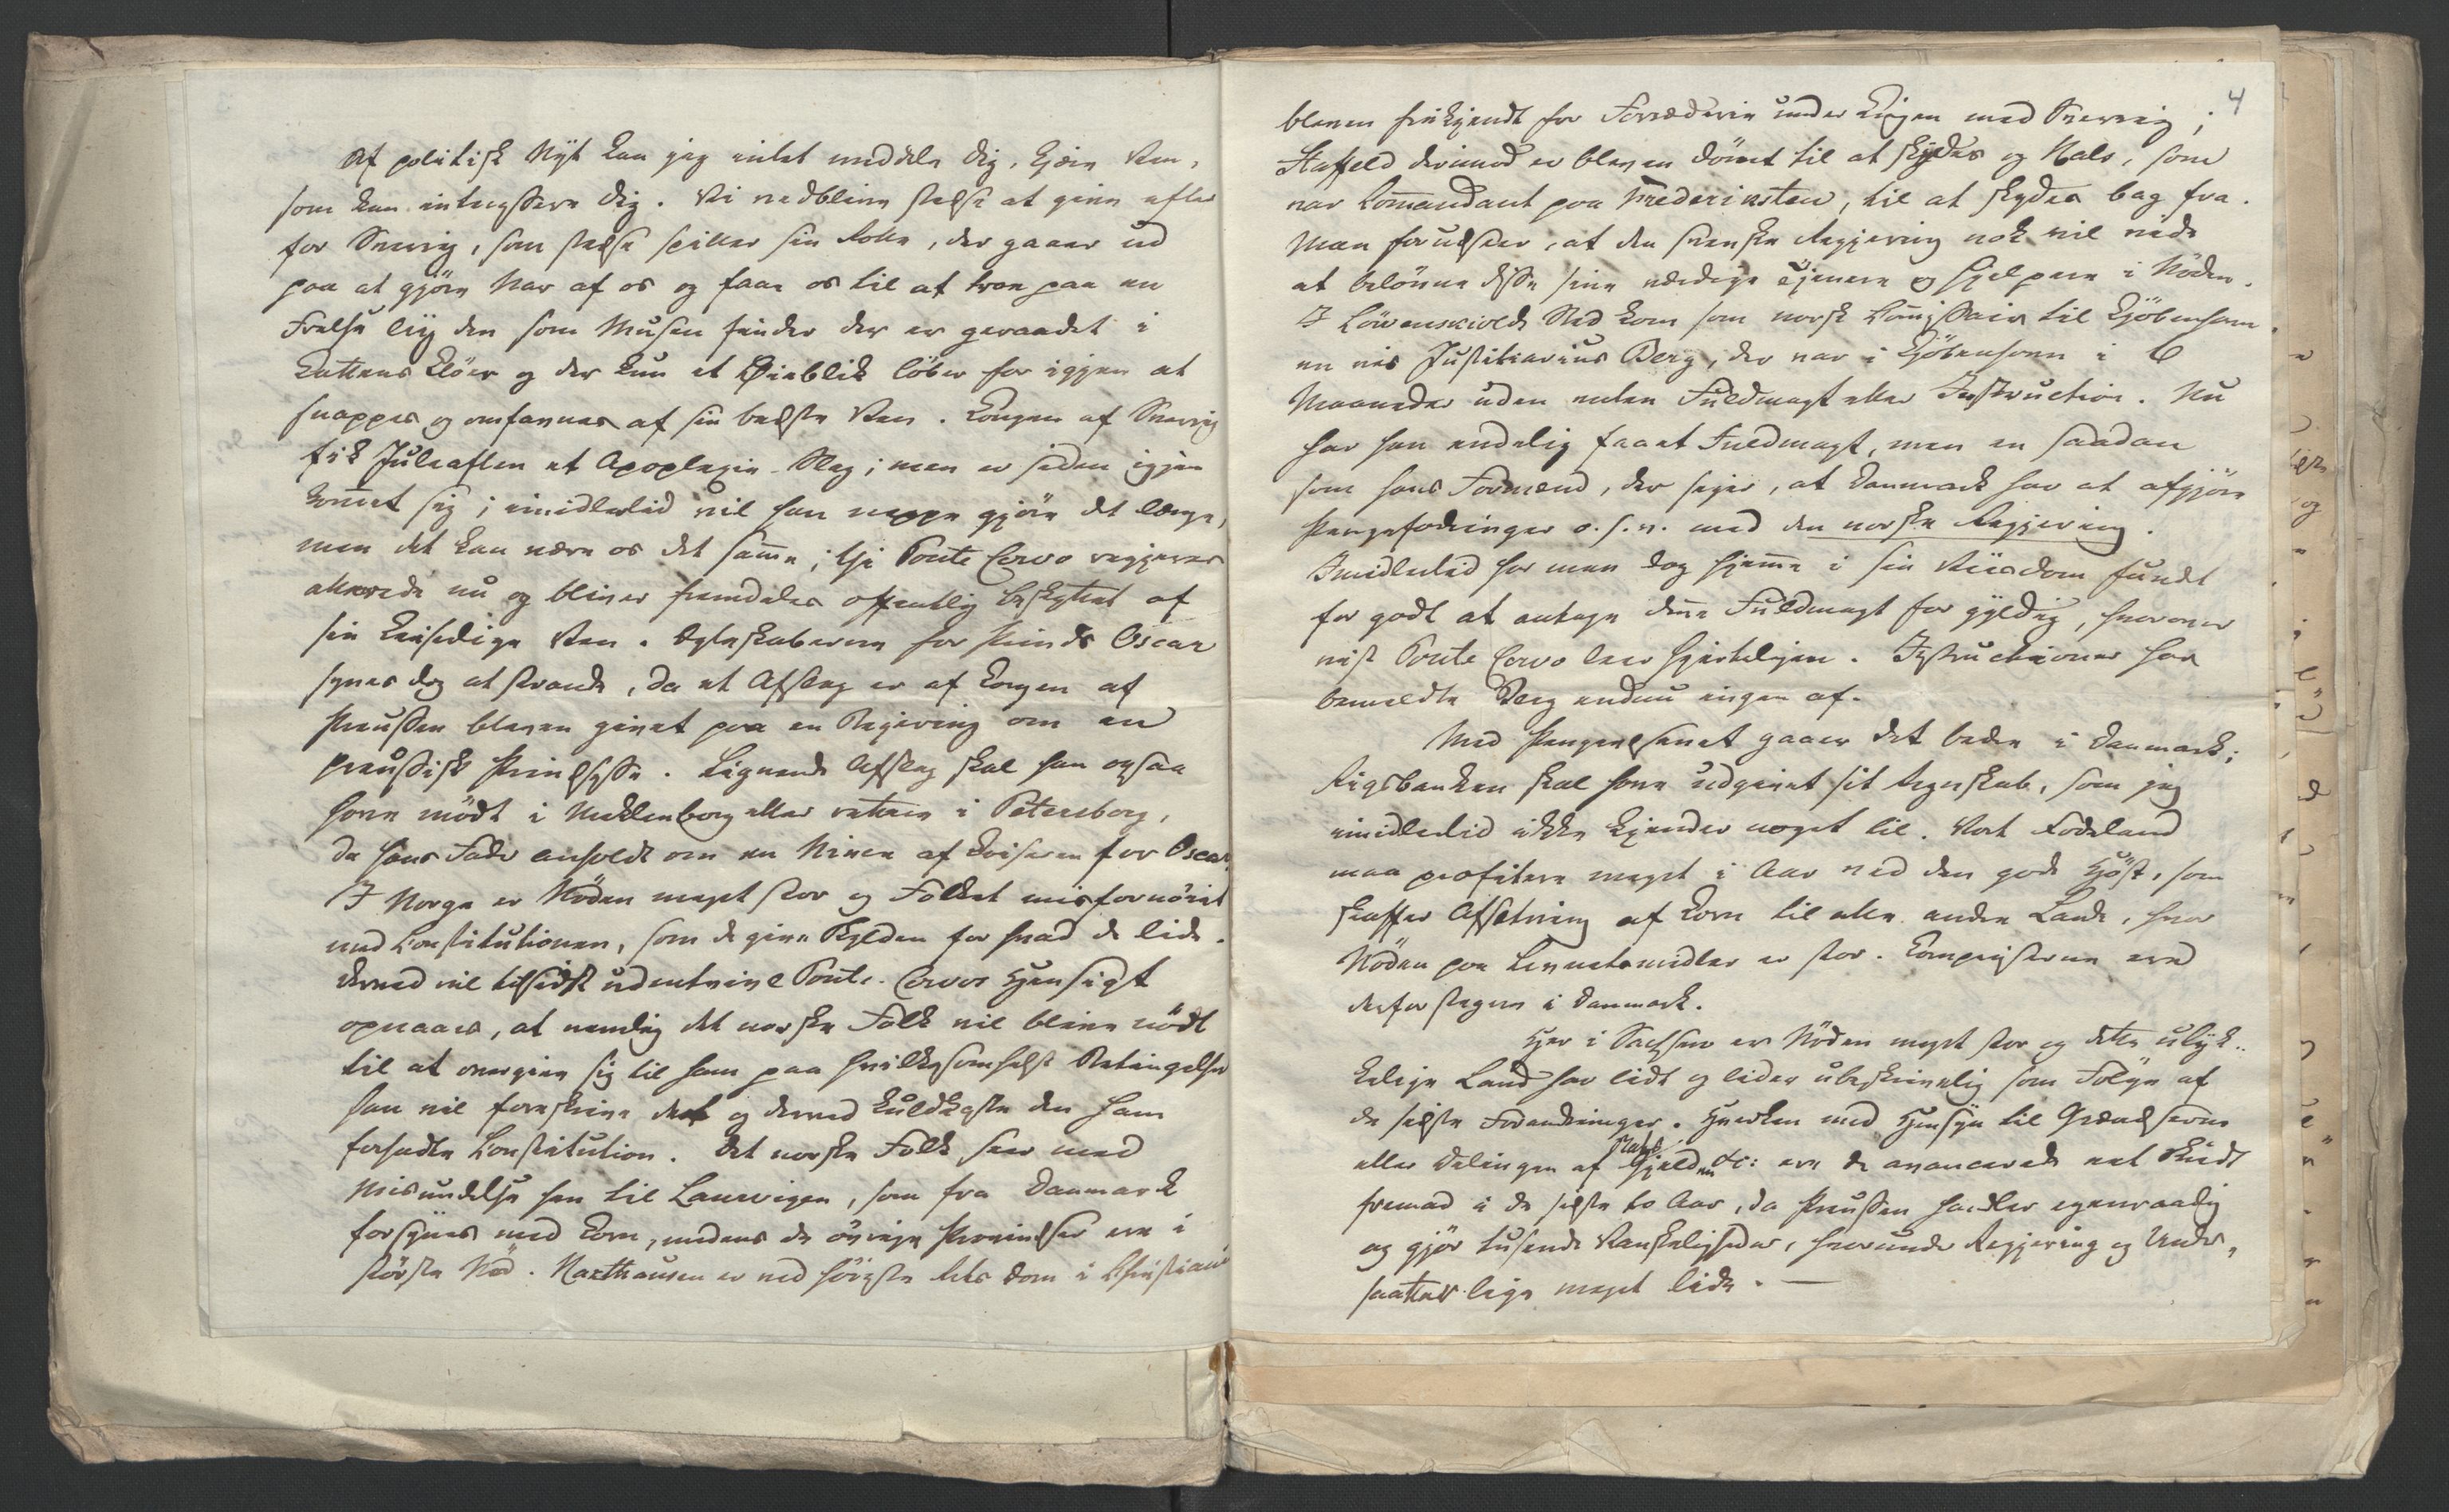 Af politisk Nyt kan jeg intet meddele Dig, kjære Ven,
som kan intressere Dig. Vi vedblive stedse at give efter
for Sverrig, som stedse spiller sin Rolle, der gaaer ud
paa at gjöre Nar af os og faae os til at troe paa en
Frelse liig den som Musen finder der er geraadet i
Kattens Klöer og der kun et Øieblik löber for igjen at
snappes og omfavnes af sin bedste Ven. Kongen af Sverrig
fik Juleaften et Apoplexie-Slag; men er siden igjen
kommet sig; imidlertid vil han neppe gjöre det længe,
men det kan være os det samme; thi Ponte Corvo regjerer
allerede nu og bliver fremdeles offentlig beskyttet af
sin keiserlige Ven. Egteskaberne for Prinds Oscar
synes dog at strande, da et Afslag er af Kongen af
Preussen bleven givet paa en Begjering om en
preussisk Prindsesse. Lignende Afslag skal han ogsaa
have mödt i Meklenborg eller rettere i Petersborg,
da hans Fader anholdt om en Niece af Keiseren for Oscar.
I Norge er Nöden meget stor og Folket misfornöiet
med Constitutionen, som de give Skylden for hvad de lide.
Derved vil tilsidst udentvivl Ponte-Corvos Hensigt
opnaaes, at nemlig det norske Folk vil blive nödt
til at overgive sig til ham paa hvilkesomhelst Betingelser
han vil foreskrive det og derved kuldkaste den ham
forhadte Constitution. Det norske Folk seer med
Misundelse hen til Laurvigen, som fra Danmark
forsynes med Korn, medens de övrige Provindser ere i
störste Nöd. Haxthausen er ved höieste Rets Dom i Christiania
4
bleven frikjendt for Forræderie under Krigen med Sverrig;
Staffeld derimod er bleven dömt til at skydes og Hals, som
var Commandant paa Frederiksteen, til at skydes bag fra.
Man forudseer, at den svenske Regjering nok vil vide
at belönne disse sine værdige Tjenere og Hjelpere i Nöden.
I Löwenskiolds Sted kom som norsk Commissair til Kjöbenhavn
en vis Justitiarius Berg, der var i Kjöbenhavn i 6
Maaneder uden enten Fuldmagt eller Instruction. Nu
har han endelig faaet Fuldmagt, men en saadan
som hans Formand, der siger, at Danmark har at afgjöre
Pengefordringer o.s.v. med den norske Regjering.
Imidlertid har man dog hjemme i sin Viisdom fundet
for godt at antage denne Fuldmagt for gyldig, hvorover
vist Ponte Corvo leer hjerteligen. Instructioner har
bemeldte Berg endnu ingen af.
Med Pengevæsenet gaaer det bedre i Danmark;
Rigsbanken skal have udgivet sit Regnskab, som jeg
imidlertid ikke kjender noget til. Vort Födeland
maa profitere meget i Aar ved den gode Höst, som
skaffer Afsetning af Korn til alle andre Lande, hvor
Nöden paa Levnetsmidler er stor. Kornpriserne ere
derfor stegne i Danmark.
Her i Sachsen er Nöden meget stor og dette ulyk-
kelige Land har lidt og lider ubeskrivelig som Fölge af
de sidste Forandringer. Hverken med Hensyn til Grændserne
eller Delingen af Stats Gjelden &c: ere de avancerede eet Skridt
fremad i de sidste to Aar, da Preussen handler egenraadig
og gjör tusende Vanskeligheder, hvorunder Regjering og Under-
saatter lige meget lide. —